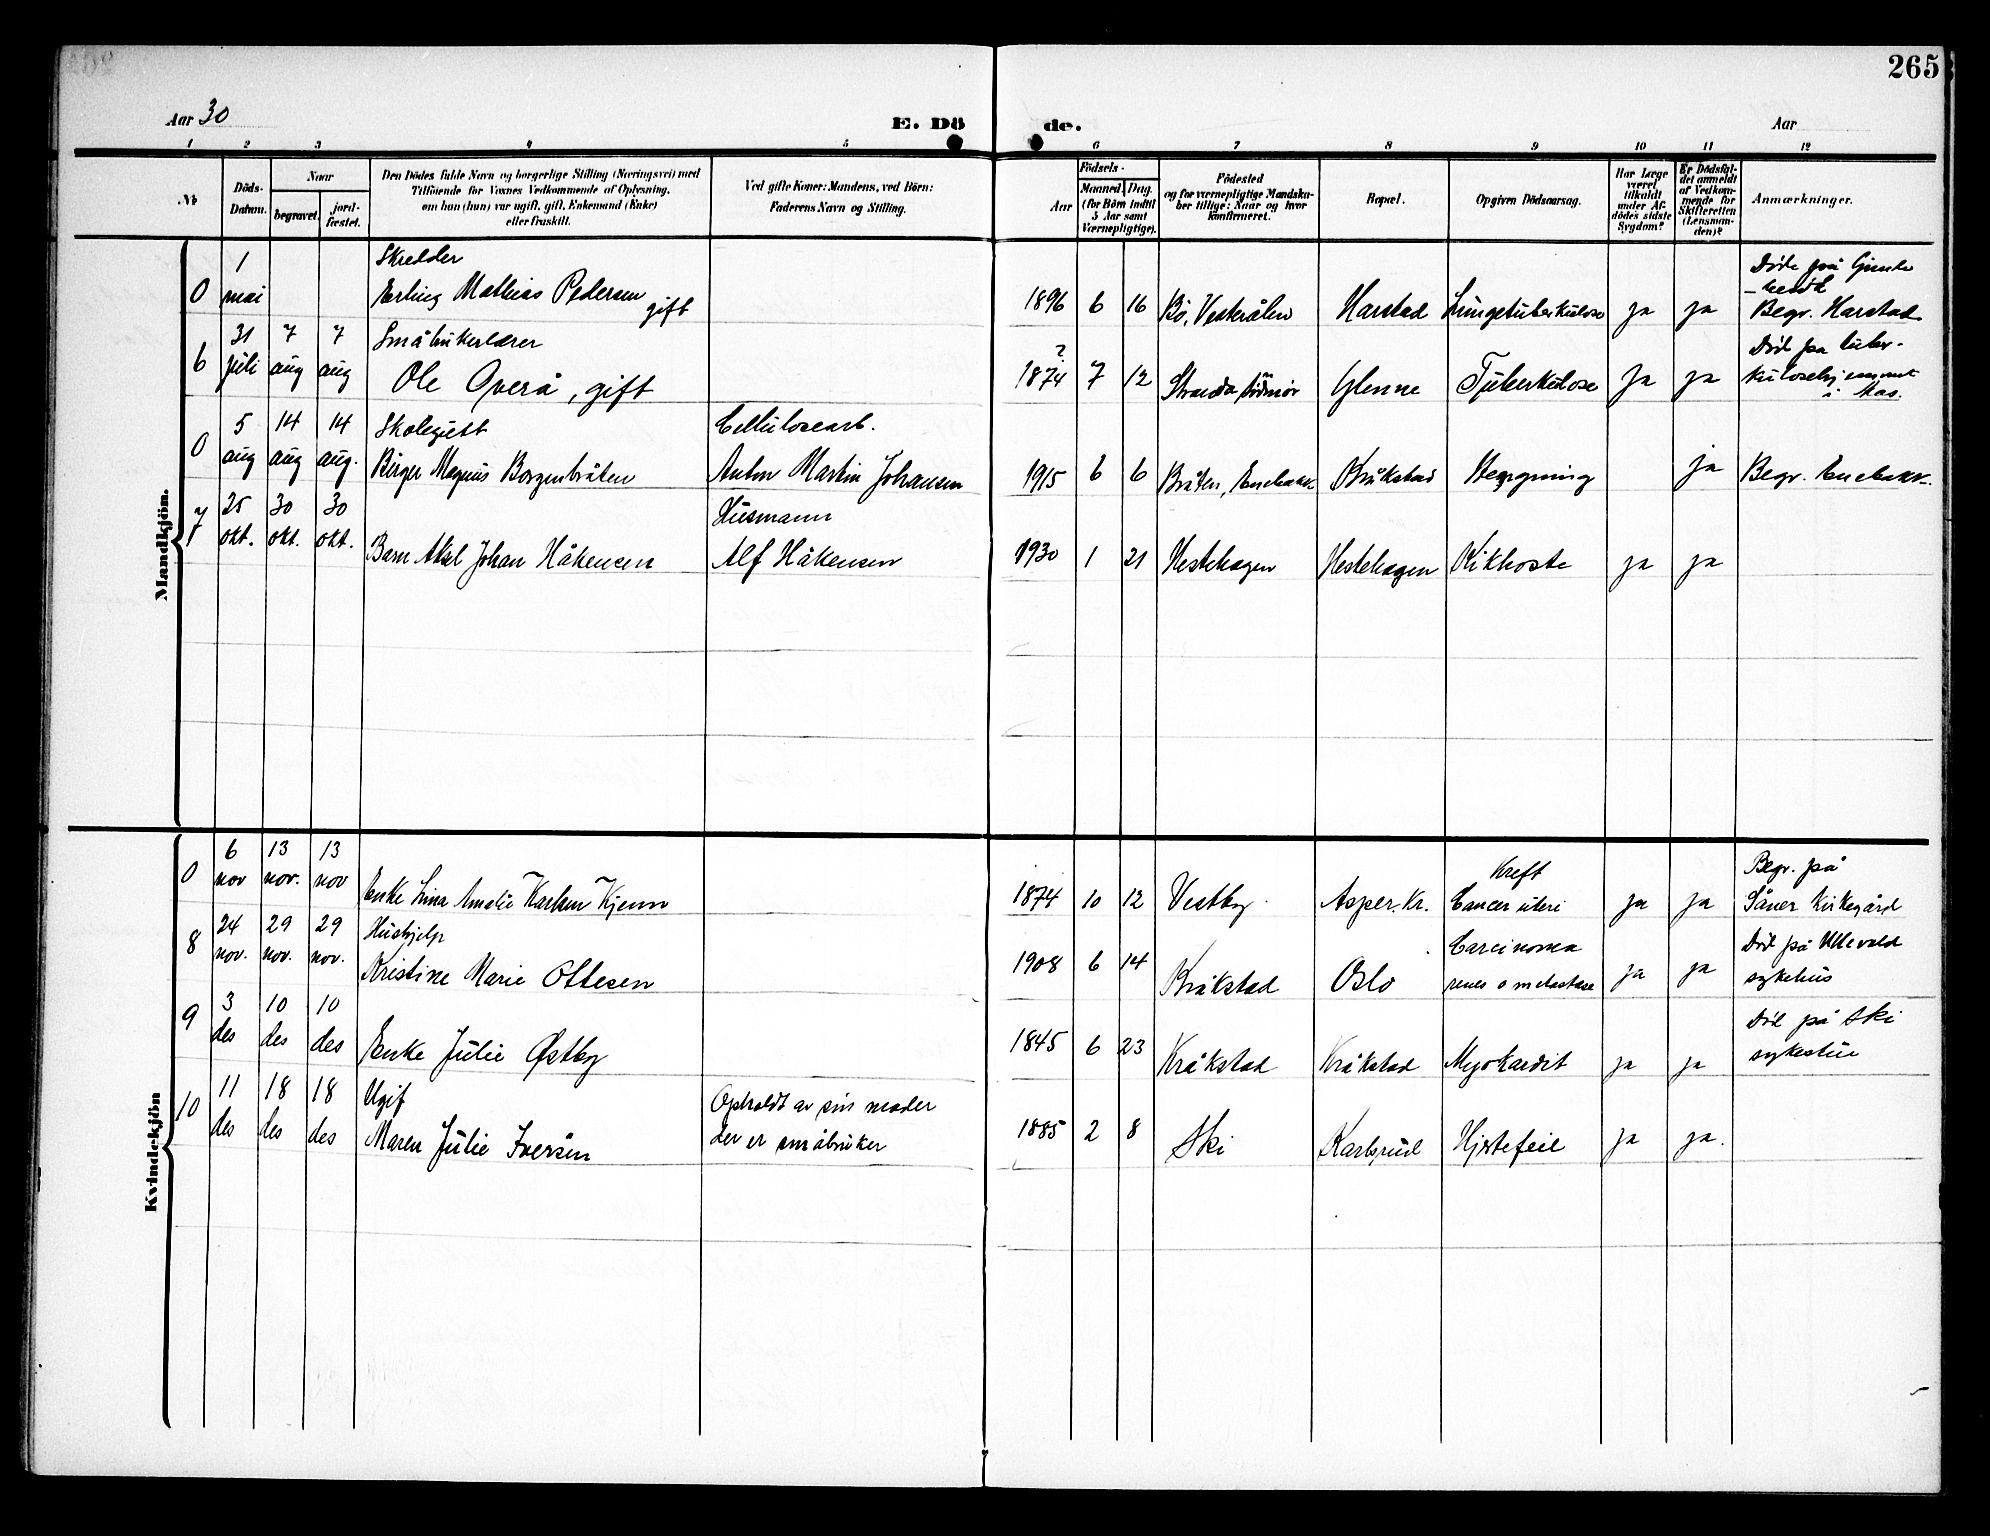 265
Aar 30
E. Dö de.
Aar
1 2 3 4 5 6 7 8 9 10 11 12
№
Döds-Datum.
Naar
begravet.
jord-fæstet.
Den Dödes fulde Navn og borgerlige Stilling (Næringsvei) med
Tilföiende for Voxnes Vedkommende af Oplysning,
om han (hun) var ugift, gift, Enkemand (Enke)
eller fraskilt.
Ved gifte Koner: Mandens, ved Börn:
Faderens Navn og Stilling.
Födsels-
Aar
Maaned. Dag.
(for Börn indtil
5 Aar samt
Værnepligtige).
Födested
og for værnepligtige Mandska-
ber tillige: Naar og hvor
konfirmeret.
Bopæl.
Opgiven Dödsaarsag.
Har Læge
været
tilkaldt
under Af-
dödes sidste
Sygdom?
Er Dödsfal-
det anmeldt
af Vedkom-
mende for
Skifteretten
(Lensman-
den)?
Anmærkninger.
Mandkjön.
0 1 mai
Skredder
Erling Mathias Pedersen gift
1896 6 16 Bö, Vesterålen Harstad Lungetuberkulose ja ja
Döde på
Begr. Harstad
6 31 juli 7 aug 7 aug
Småbrukerlærer
Ole Overå, gift
1874 ? 7 12 Stranda, Södmör Glenne Tuberkulose ja ja
Död på tuber-
kulosehjemmet
i Mas.
0 5 aug 14 aug 14 aug.
Skolegutt
Birger Magnus Borgenbråten
Cellulosearb.
Anton Martin Johansen
1915 6 6 Bråten, Enebakk Kråkstad ja Begr. Enebakk.
7 25 okt. 30 okt. 30 okt.
Barn Aksel Johan Håkensen
Husmann
Alf Håkensen
1930 1 21 Hestehagen Hestehagen Kikhoste ja ja
Kvindekjön
0 6 nov 13 nov. 13 nov
Enke Lina Amalie Karlsen Kjenn
1874 10 12 Vestby. Asper. Kr.
Kreft
Cancer uteri ja ja
Begr. på
Såner Kirkegård
8 24 nov. 29 nov. 29 nov.
Hushjelp
Kristine Marie Ottesen
1908 6 14 Kråkstad Oslo
Carcinoma
renes o metastase ja ja
Död på Ullevold
sykehus
9 3 des 10 des 10 des
Enke Julie Østby
1845 6 23 Kråkstad Kråkstad Myokardit ja ja
Död på Ski
sykestue
10 11 des 18 des 18 des
Ugif
Maren Julie Iversen
Opholdt av sin moder
der er småbruker
1885 2 8 Ski Karlsrud Hjertefeil ja ja.